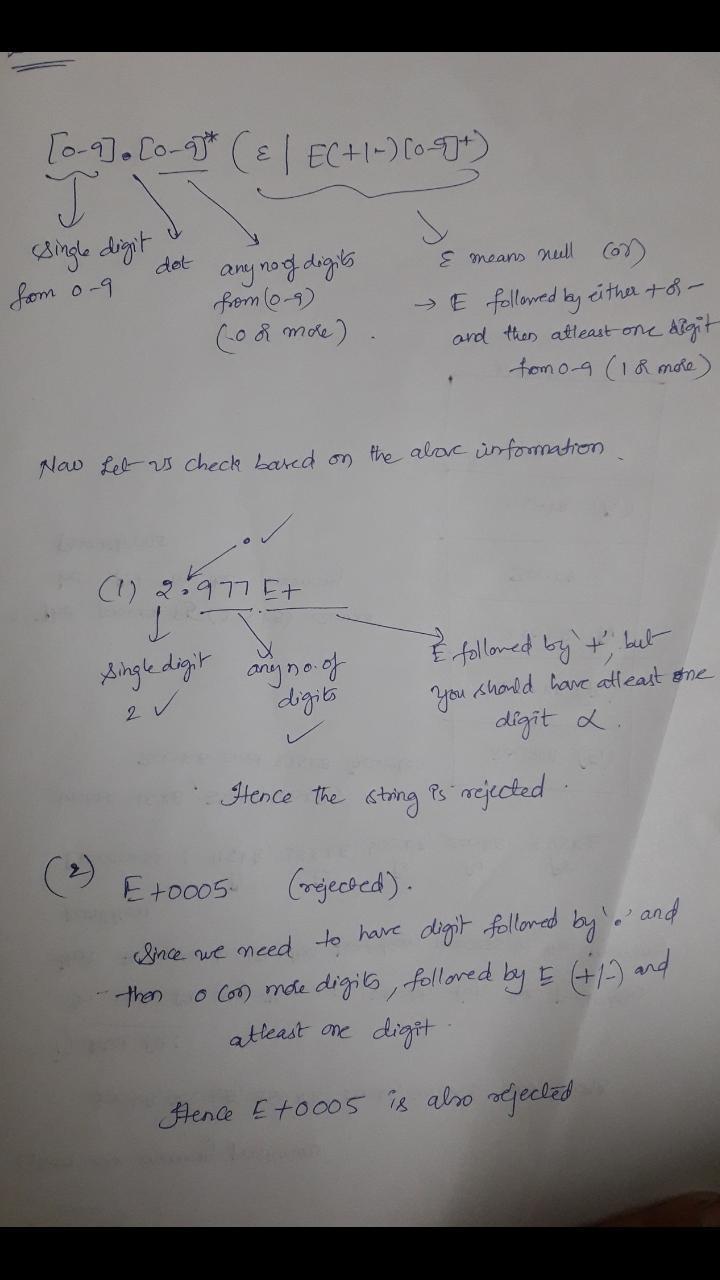 [0-9].[0-9]* (ε | E(+|-)[0-9]+)
single digit
from 0-9
dot
any no of digits
from (0-9)
(0 or more).
ε means null (or)
→ E followed by either + or -
and then atleast one digit
from 0-9 (1 or more)
Now Let us check based on the above information.
. ✓
(1) 2.977 E+
single digit
2 ✓
any no. of
digits
✓
E followed by '+', but
you should have atleast one
digit
Hence the string is rejected.
(2) E+0005 (rejected).
Since we need to have digit followed by '.' and
then 0 (or) more digits, followed by E (+/-) and
atleast one digit.
Hence E+0005 is also rejected